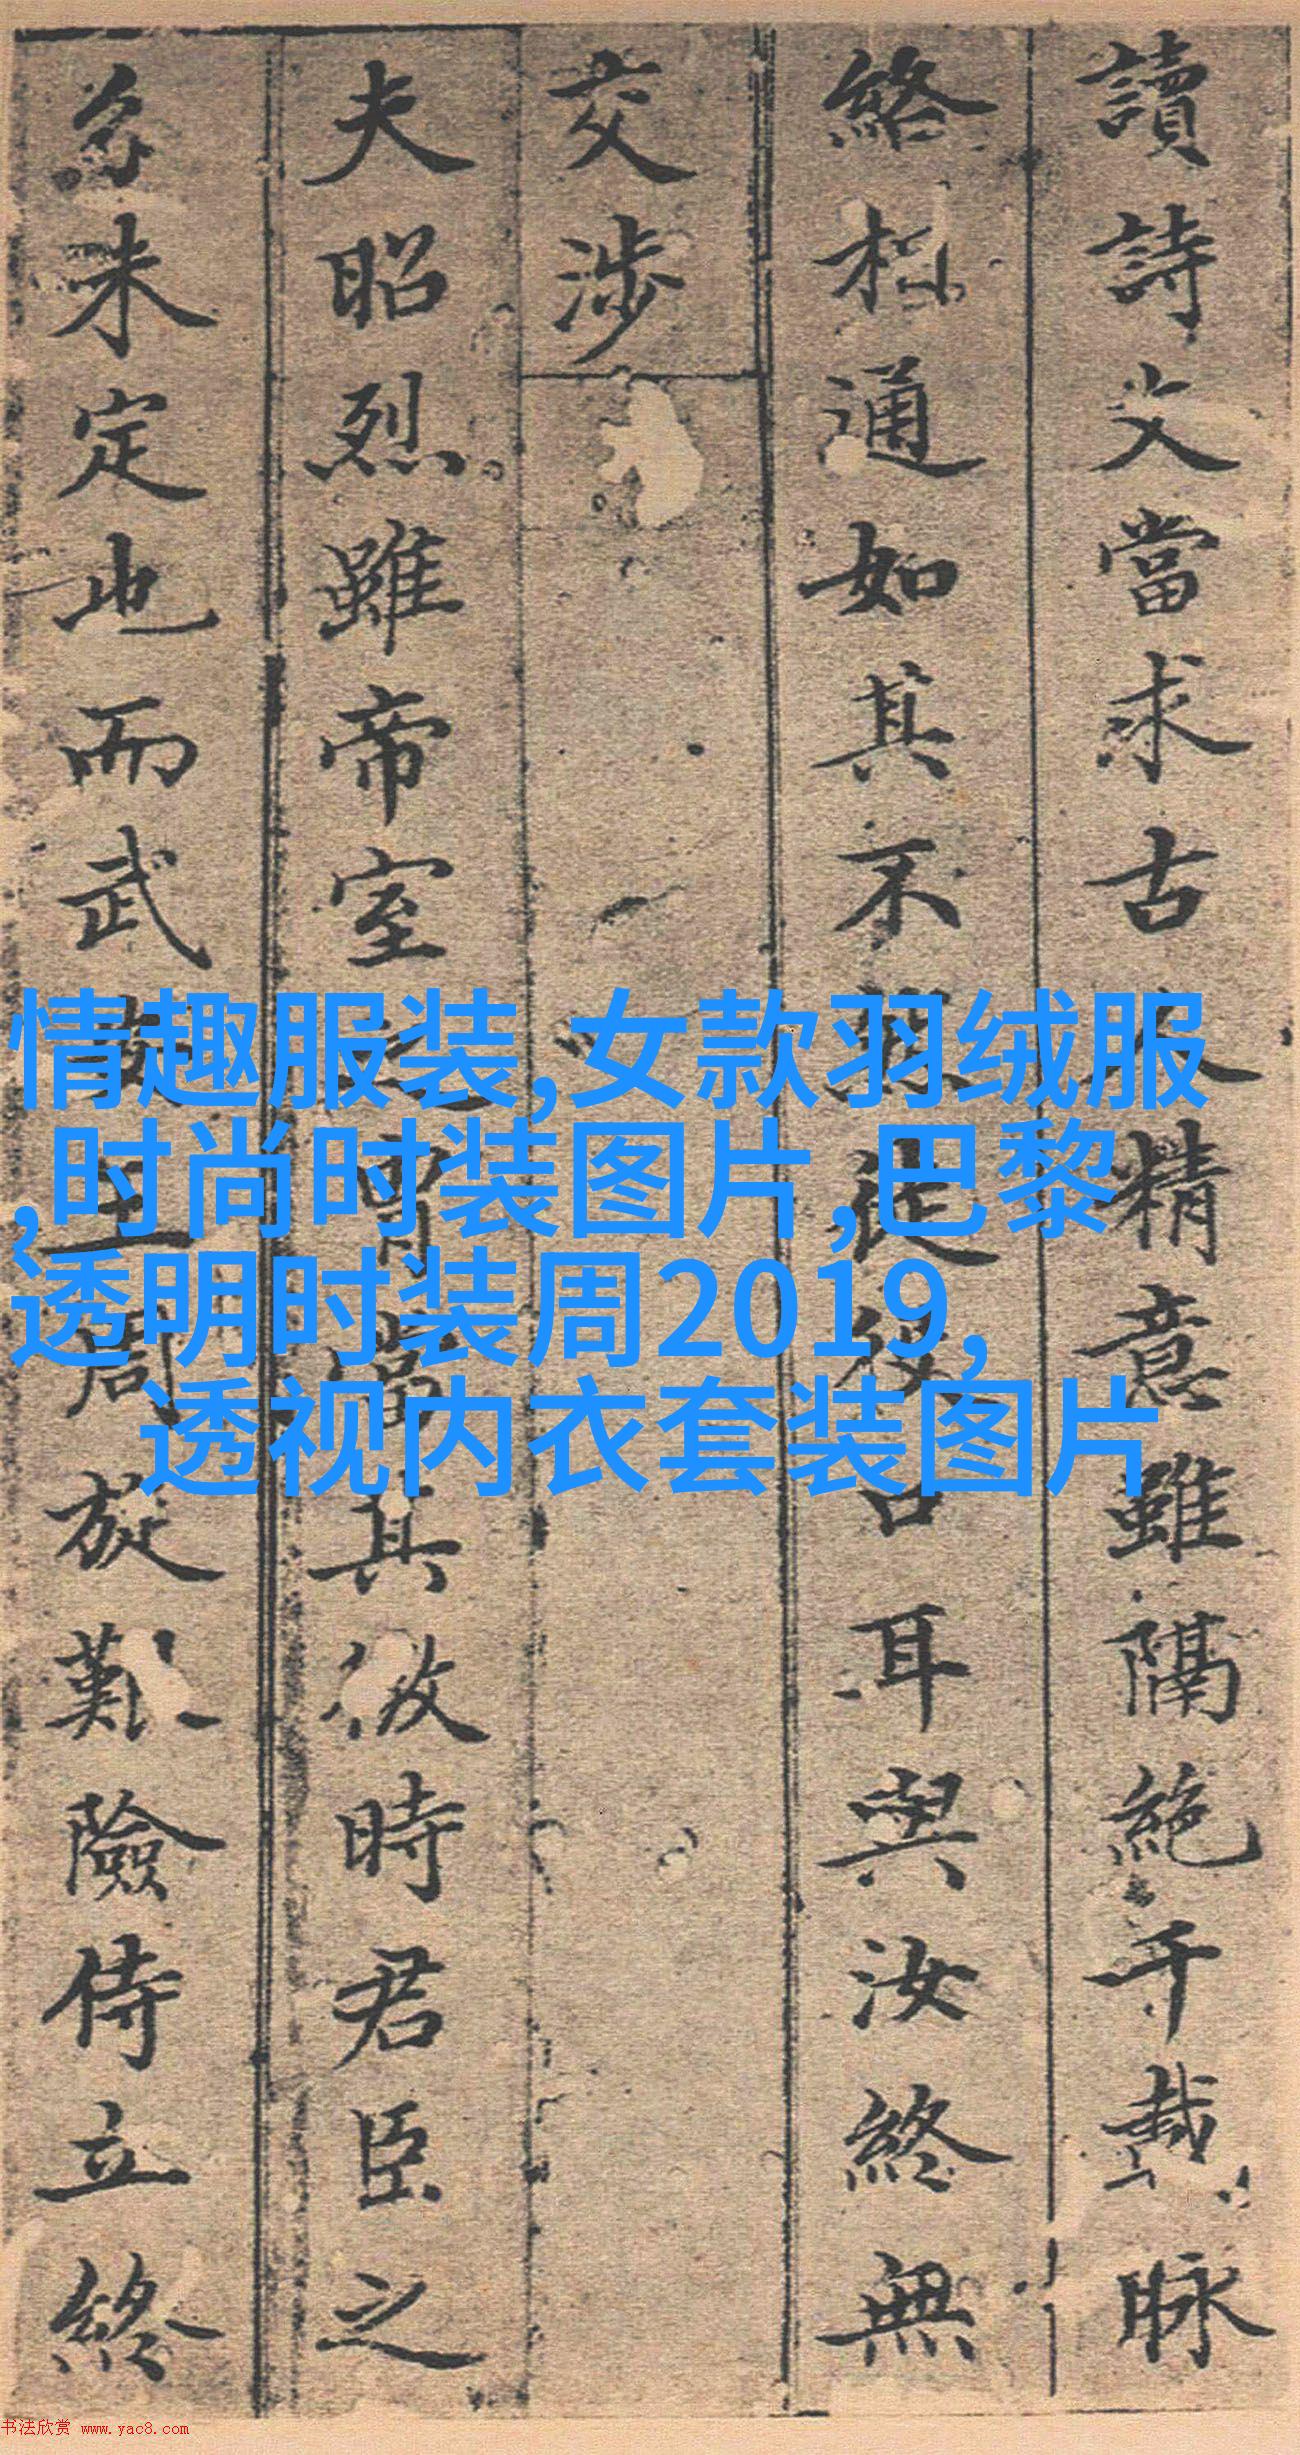 讀詩文當求古人精意雖隔絶千載脉
絡相通如其不徒役口耳與汝終無
交涉
夫昭烈雖帝室之胄當其微時君臣之
分未定也而武王周旋艱險侍立終
情趣服装,女款羽绒服
,时尚时装图片,巴黎
透明时装周2019,
透视内衣套装图片
书法欣赏 www.yac8.com